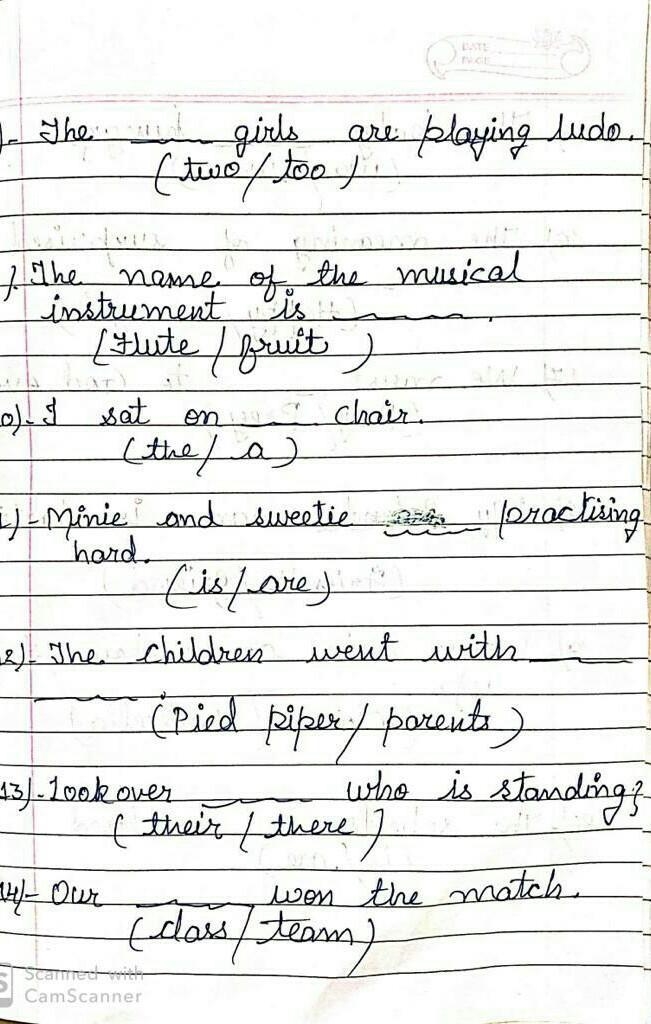 DATE
PAGE
)- The ____ girls are playing ludo.
(two/too)
). The name of the musical
instrument is ____.
(Flute/fruit)
0)- I sat on ____ chair.
(the/a)
1)- Minie and sweetie ____ practising
hard.
(is/are)
2)- The children went with ____
____.
(Pied piper/parents)
13)- Look over ____ who is standing?
(their/there)
14)- Our ____ won the match.
(class/team)
Scanned with
CamScanner